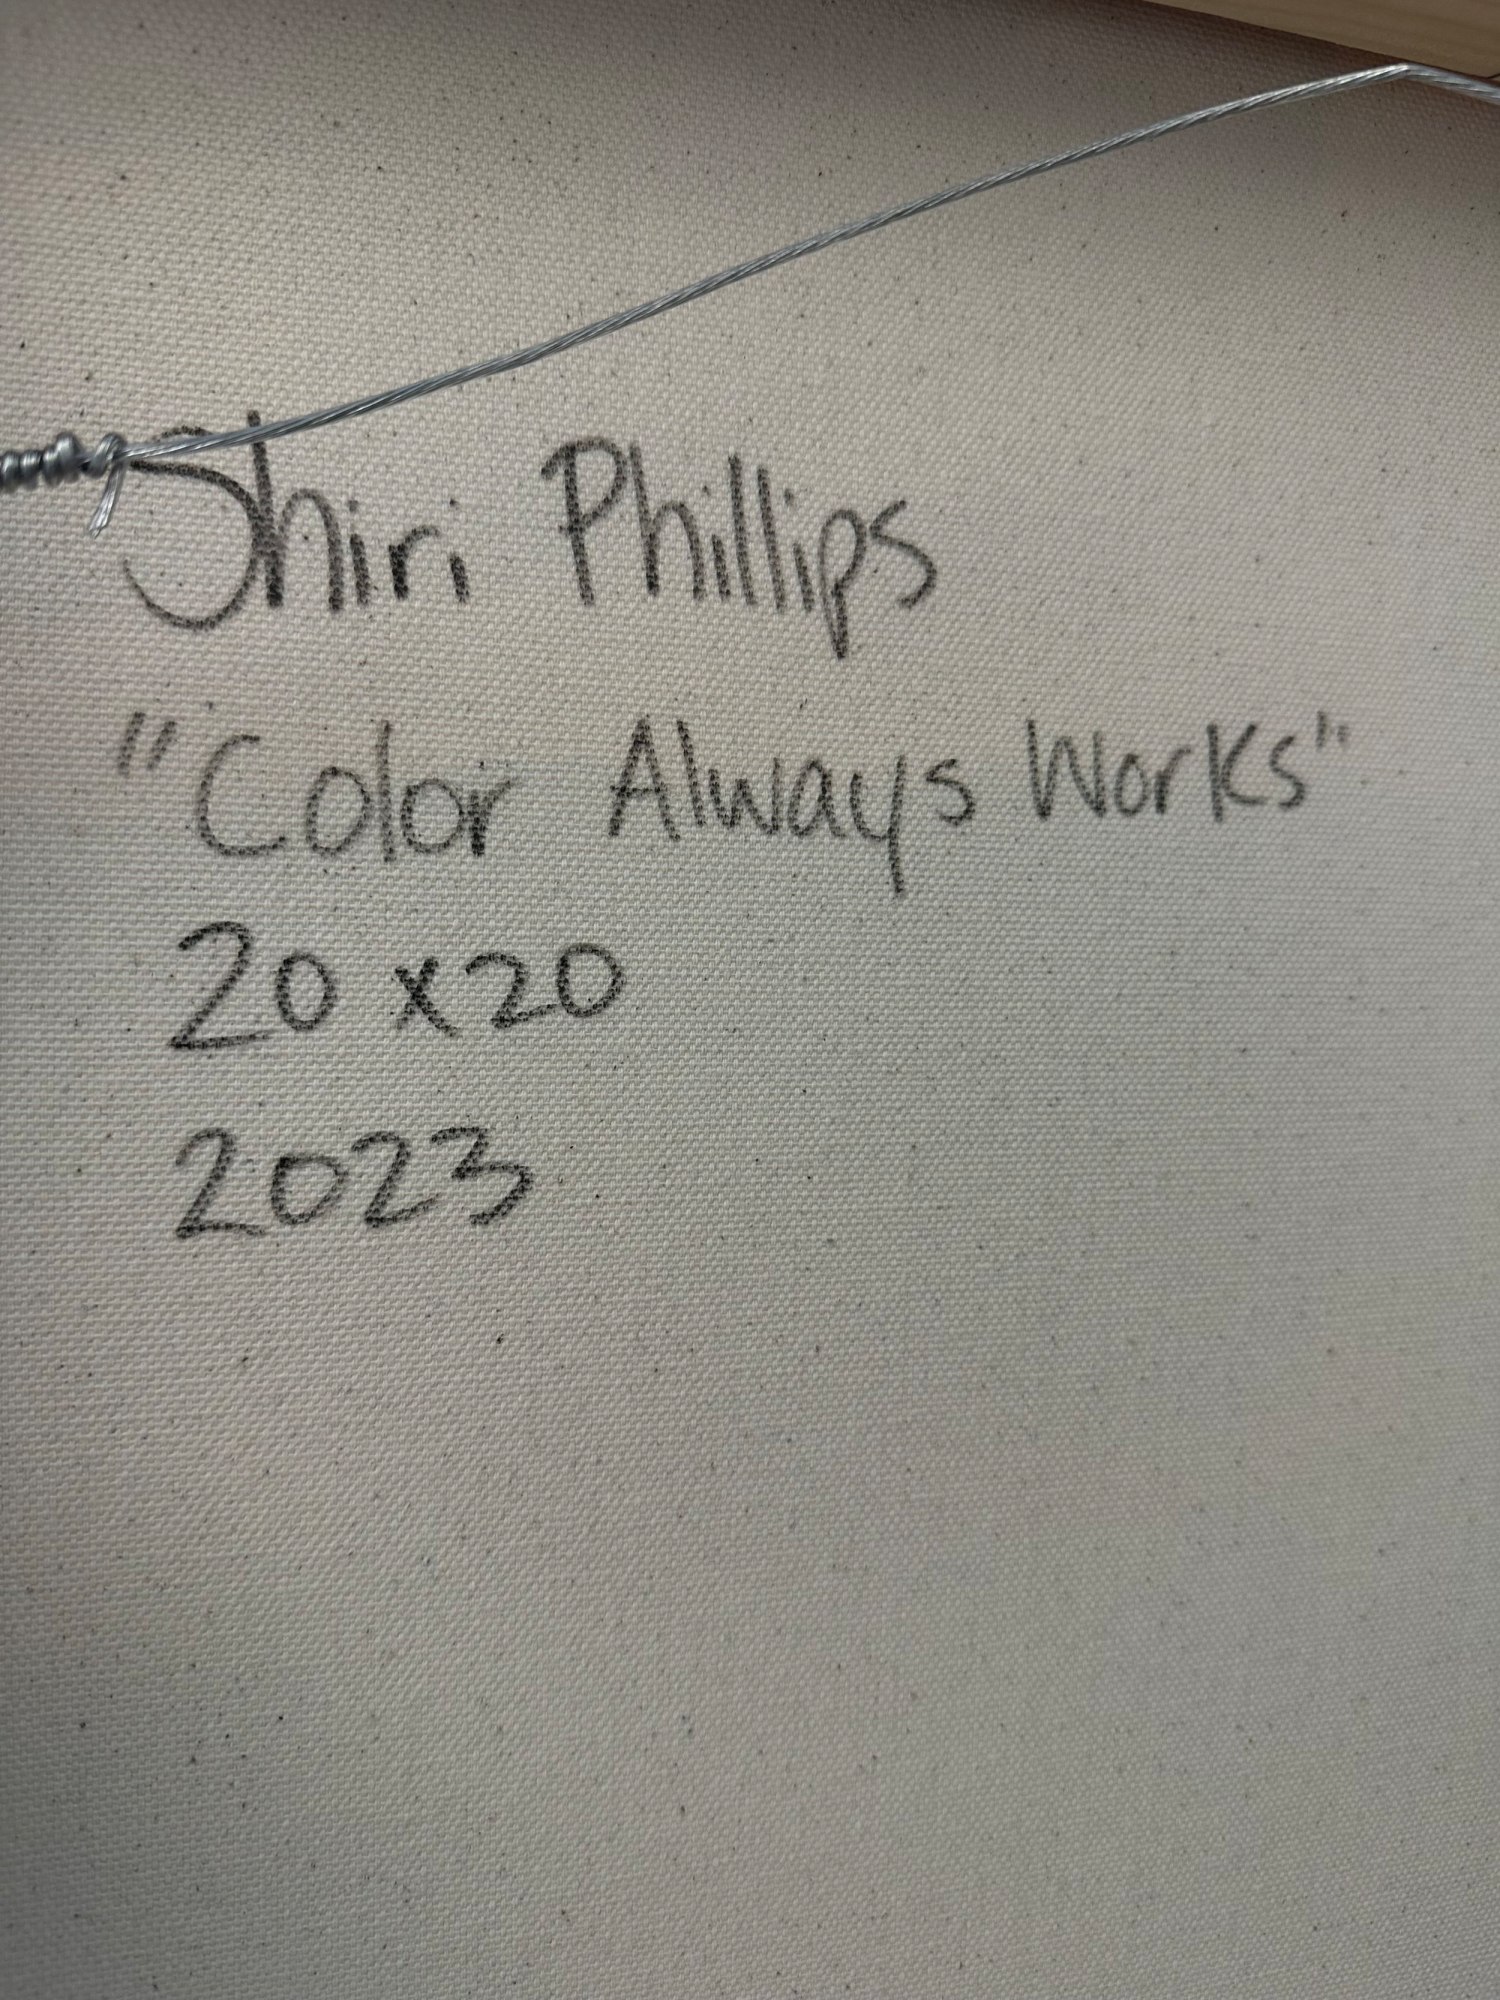 Shiri Phillips
"Color Always Works"
20 x 20
2023